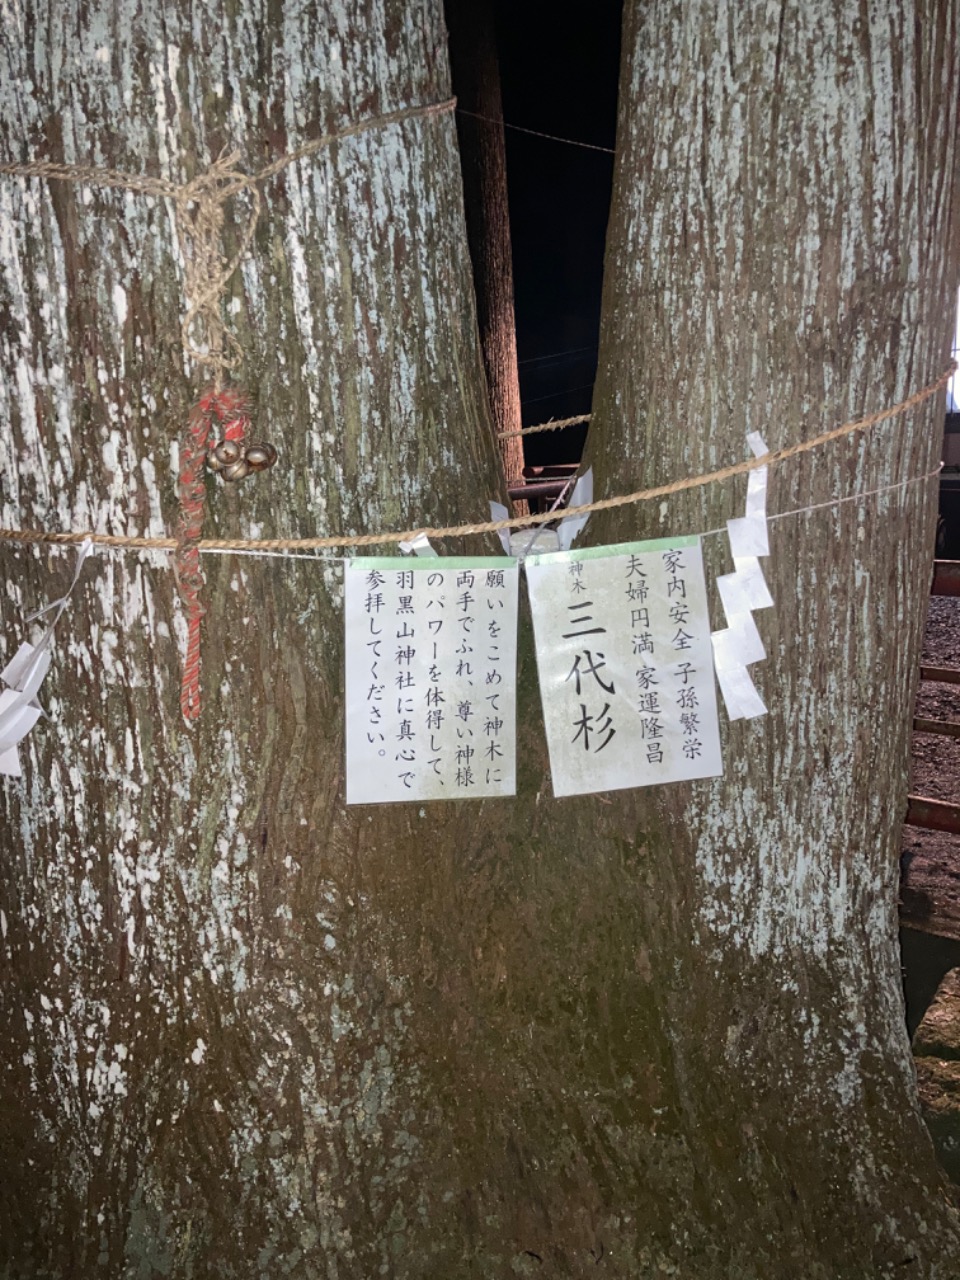 家内安全 子孫繁栄
夫婦円満 家運隆昌
神木 三代杉
願いをこめて神木に
両手でふれ、尊い神様
のパワーを体得して、
羽黒山神社に真心で
参拝してください。